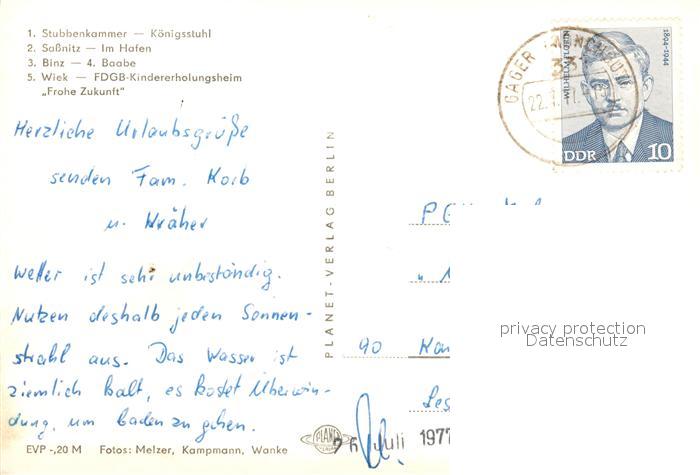 1. Stubbenkammer — Königsstuhl
2. Saßnitz — Im Hafen
3. Binz — 4. Baabe
5. Wiek — FDGB-Kindererholungsheim
„Frohe Zukunft"
Herzliche Urlaubsgrüße
senden Fam. Korb
u. Kräher
Wetter ist sehr unbeständig.
Nutzen deshalb jeden Sonnen-
strahl aus. Das Wasser ist
ziemlich kalt, es kostet Überwin-
dung, um baden zu gehen.
EVP -,20 M Fotos: Melzer, Kampmann, Wanke
PLANET-VERLAG BERLIN
PLANET
GAGER
22.
1894-1944
DDR 10
90
privacy protection
Datenschutz
Juli 1977